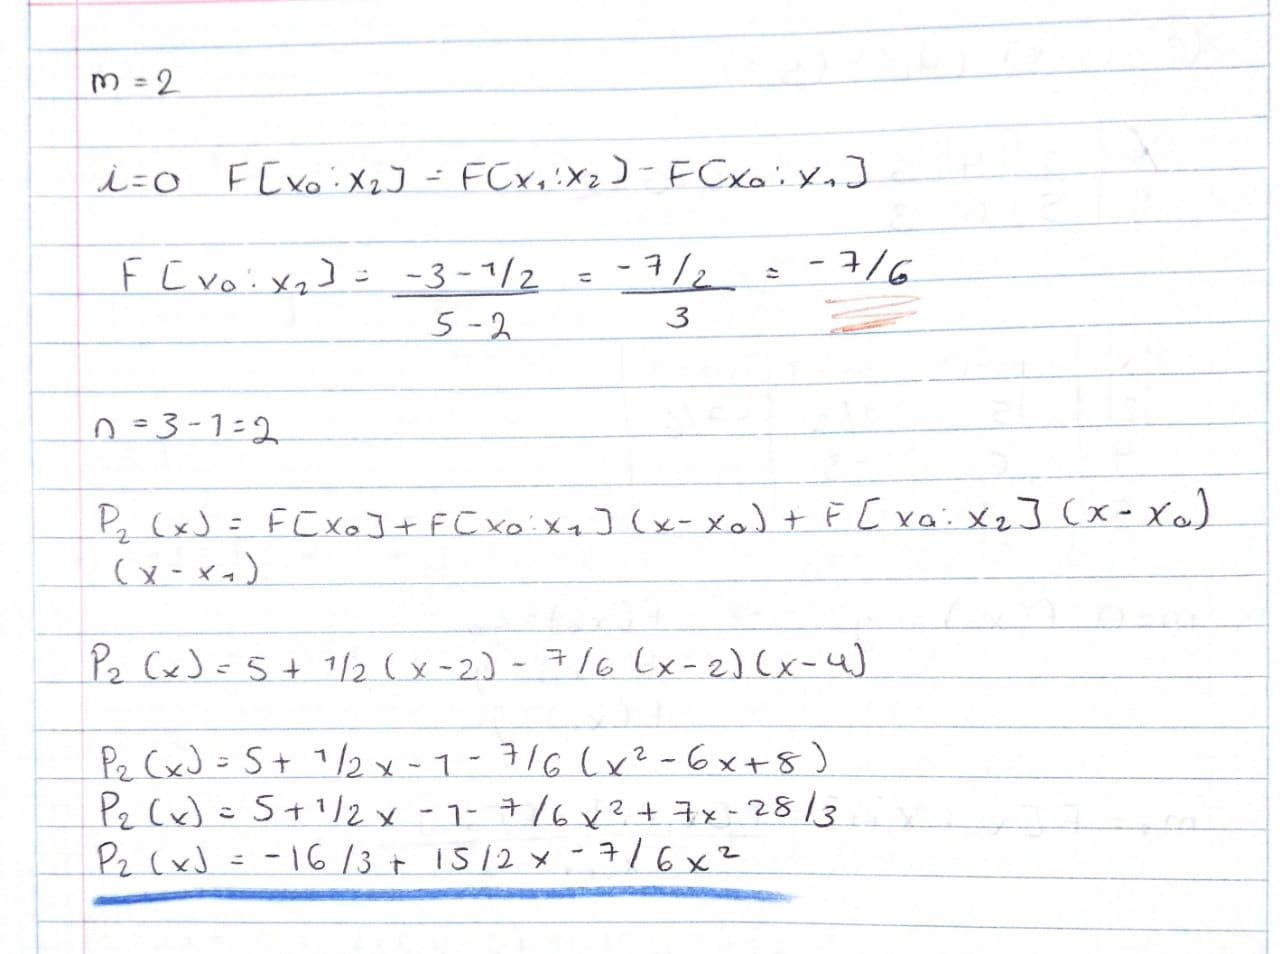 m = 2
i=0 F[x₀:x₂] = F[x₁:x₂] - F[x₀:x₁]
F[x₀:x₂] = (-3 - 1/2)/(5 - 2) = (-7/2)/3 = -7/6
n = 3 - 1 = 2
P₂(x) = F[x₀] + F[x₀:x₁](x - x₀) + F[x₀:x₂](x - x₀)
(x - x₁)
P₂(x) = 5 + 1/2(x-2) - 7/6(x-2)(x-4)
P₂(x) = 5 + 1/2x - 1 - 7/6(x² - 6x + 8)
P₂(x) = 5 + 1/2x - 1 - 7/6x² + 7x - 28/3
P₂(x) = -16/3 + 15/2x - 7/6x²